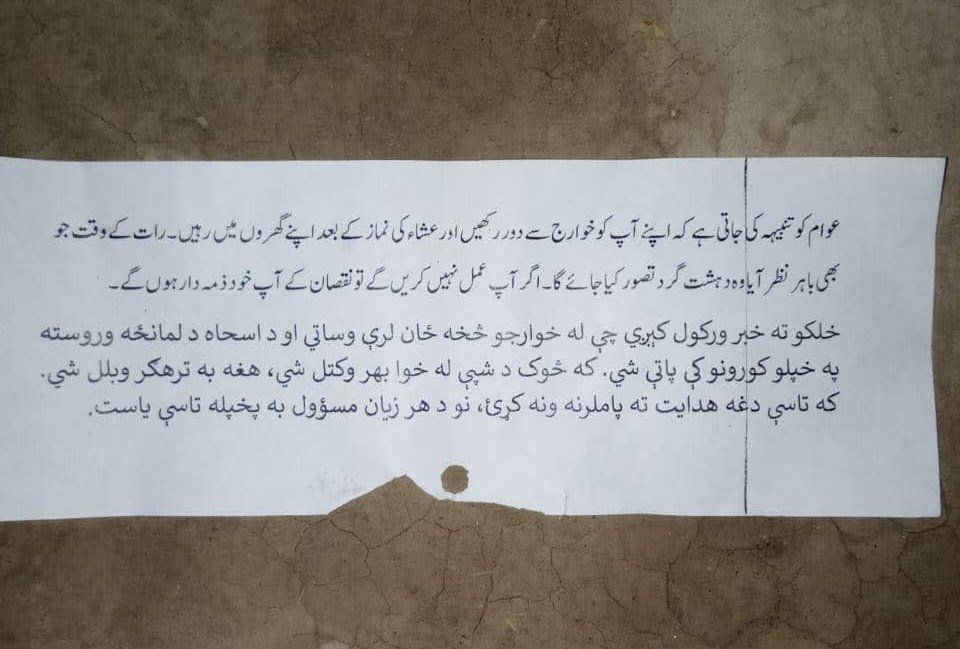 عوام کو تنبیہہ کی جاتی ہے کہ اپنے آپ کو خوارج سے دور رکھیں اور عشاء کی نماز کے بعد اپنے گھروں میں رہیں۔ رات کے وقت جو
بھی باہر نظر آیا وہ دہشت گرد تصور کیا جائے گا۔ اگر آپ عمل نہیں کریں گے تو نقصان کے آپ خود ذمہ دار ہوں گے۔
خلکو ته خبر ورکول کېږي چې له خوارجو څخه ځان لرې وساتي او د اسحاه د لمانځه وروسته
په خپلو کورونو کې پاتې شي. که څوک د شپې له خوا بهر وکتل شي، هغه به ترهګر وبلل شي.
که تاسې دغه هدایت ته پاملرنه ونه کړئ، نو د هر زیان مسؤول به پخپله تاسې یاست.